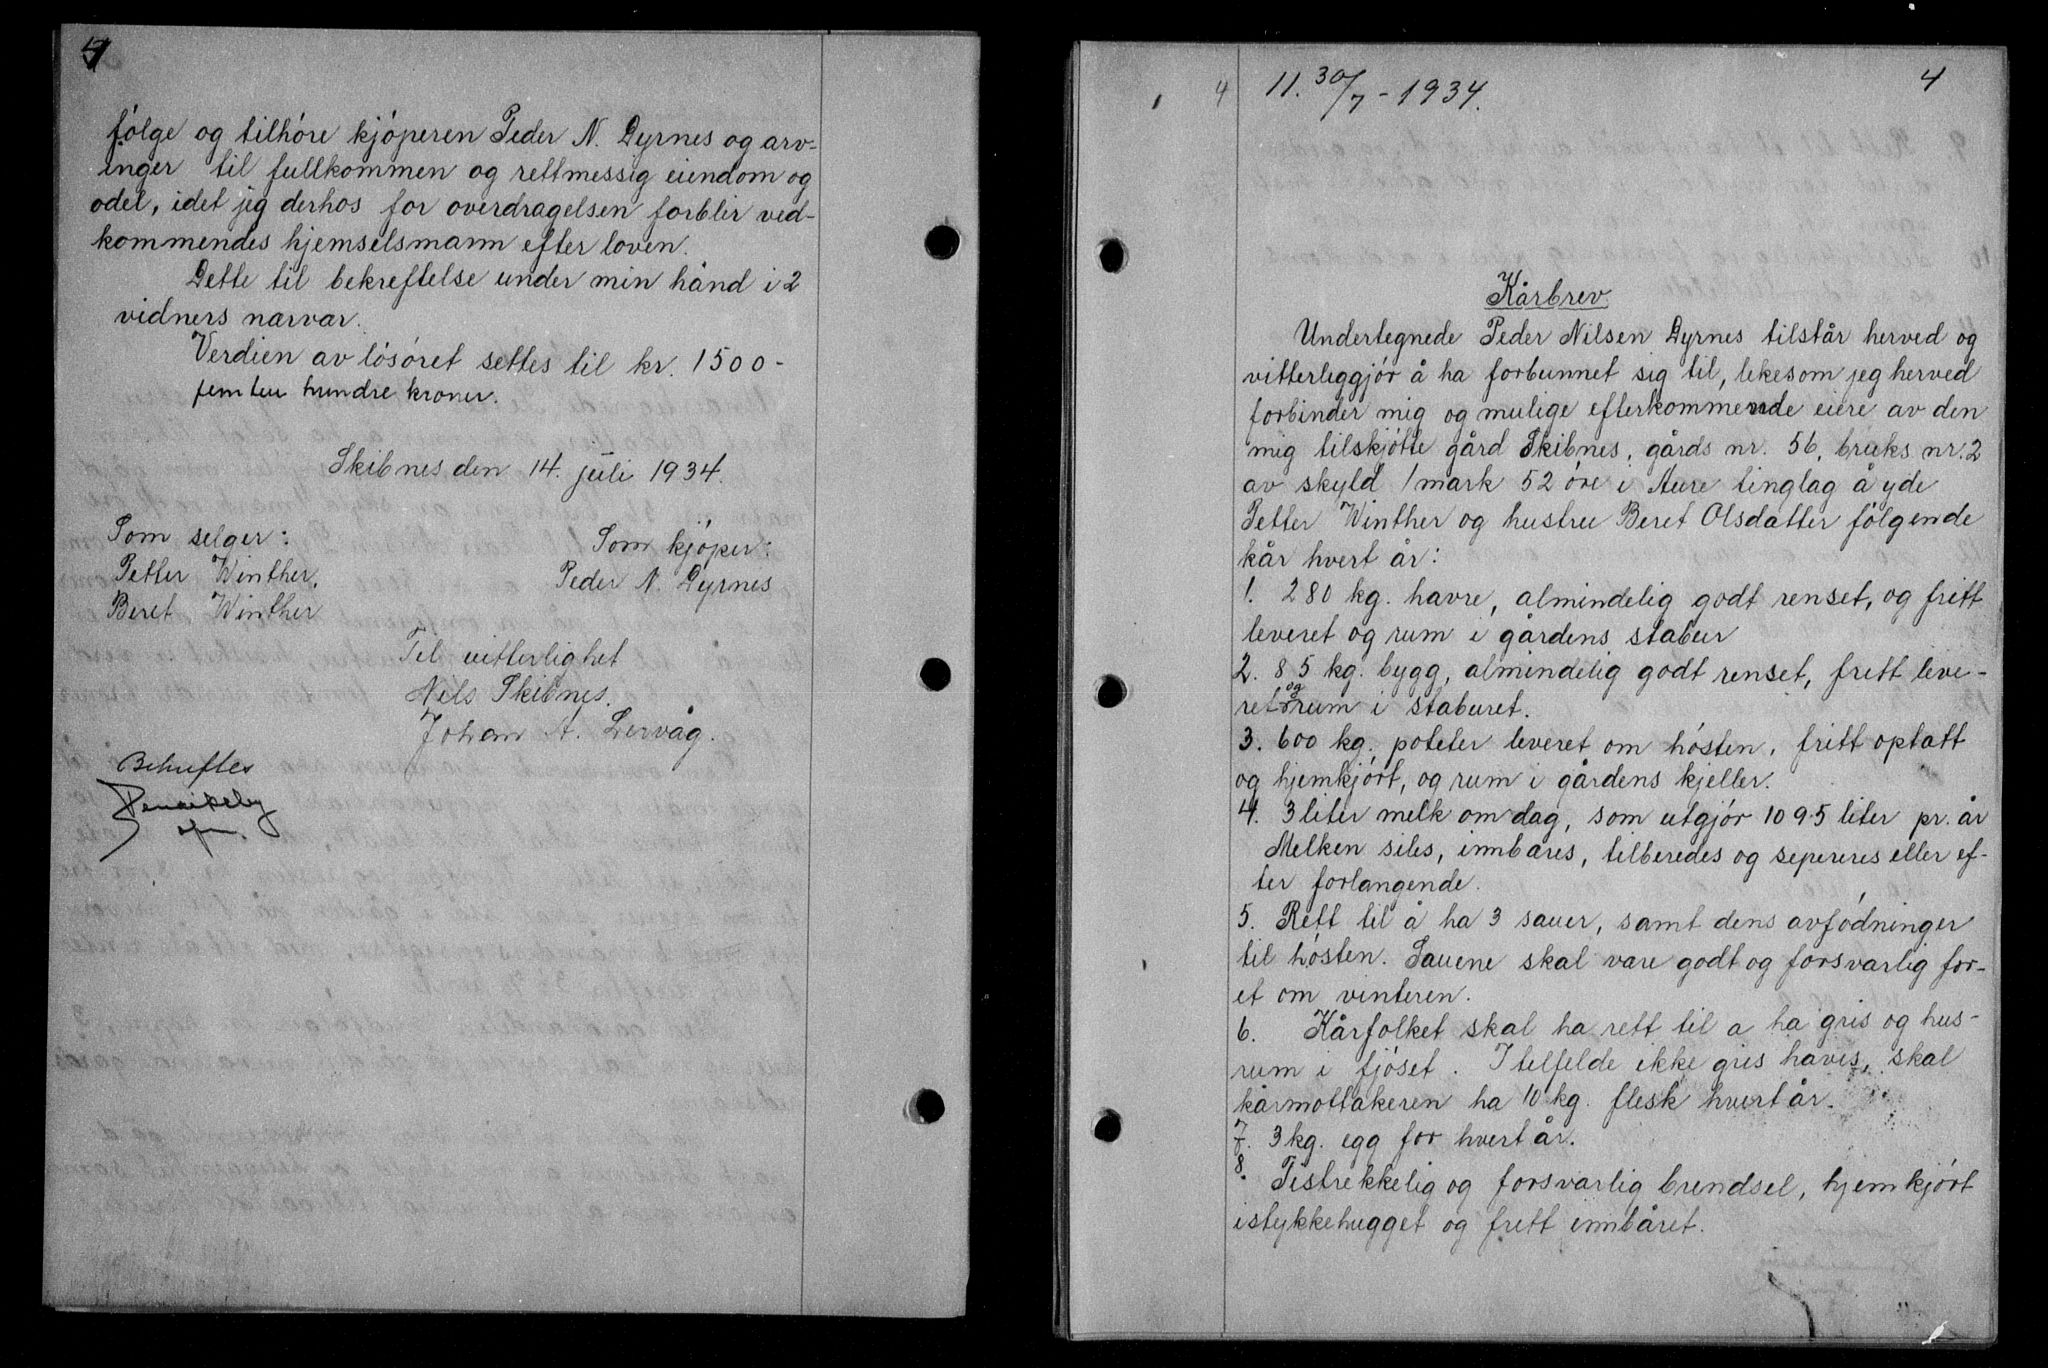 følge og tilhöre kjöperen Peder N. Dyrnes og arv-
inger til fullkommen og rettmessig eiendom og
odel, idet jeg derhos for overdragelsen forblir ved-
kommendes hjemselsmann efter loven.
Dette til bekreftelse under min hånd i 2
vidners narvar.
Verdien av lösöret settes til kr. 1500-
femten hundre kroner.
Skibnes den 14. juli 1934.
Som selger:
Petter Winther.
Beret Winther
Som kjöper:
Peder N. Dyrnes
Til vitterlighet
Nils Skibnes.
Johan A. Lervåg.
Bekreftes
4
4
11. 30/7 - 1934.
Kårbrev
Undertegnede Peder Nilsen Dyrnes tilstår herved og
vitterliggjör å ha forbunnet sig til, likesom jeg herved
forbinder mig og mulige efterkommende eiere av den
mig tilskjötte gård Skibnes, gårds nr. 56, bruks nr. 2
av skyld 1 mark 52 öre i Aure tinglag å yde
Petter Winther og hustru Beret Olsdatter fölgende
kår hvert år:
1. 280 kg. havre, almindelig godt renset, og fritt
leveret og rum i gårdens stabur
2. 85 kg. bygg, almindelig godt renset, fritt leve-
ret og rum i staburet.
3. 600 kg. poteter leveret om hösten, fritt optatt
og hjemkjört, og rum i gårdens kjeller.
4. 3 liter melk om dag, som utgjör 1095 liter pr. år
Melken siles, innbæres, tilberedes og sepereres eller ef-
ter forlangende.
5. Rett til å ha 3 sauer, samt dens avfödninger
til hösten. Sauene skal vare godt og forsvarlig for-
et om vinteren.
6. Kårfolket skal ha rett til a ha gris og hus-
rum i fjöset. I tilfelde ikke gris haves, skal
kårmottakeren ha 10 kg. flesk hvert år.
7. 3 kg. egg for hvert år.
8. Tistrekkelig og forsvarlig brendsel, hjemkjört
istykkehugget og fritt innbåret.